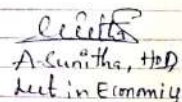 A. Sunitha, HOD
Lect in Economics